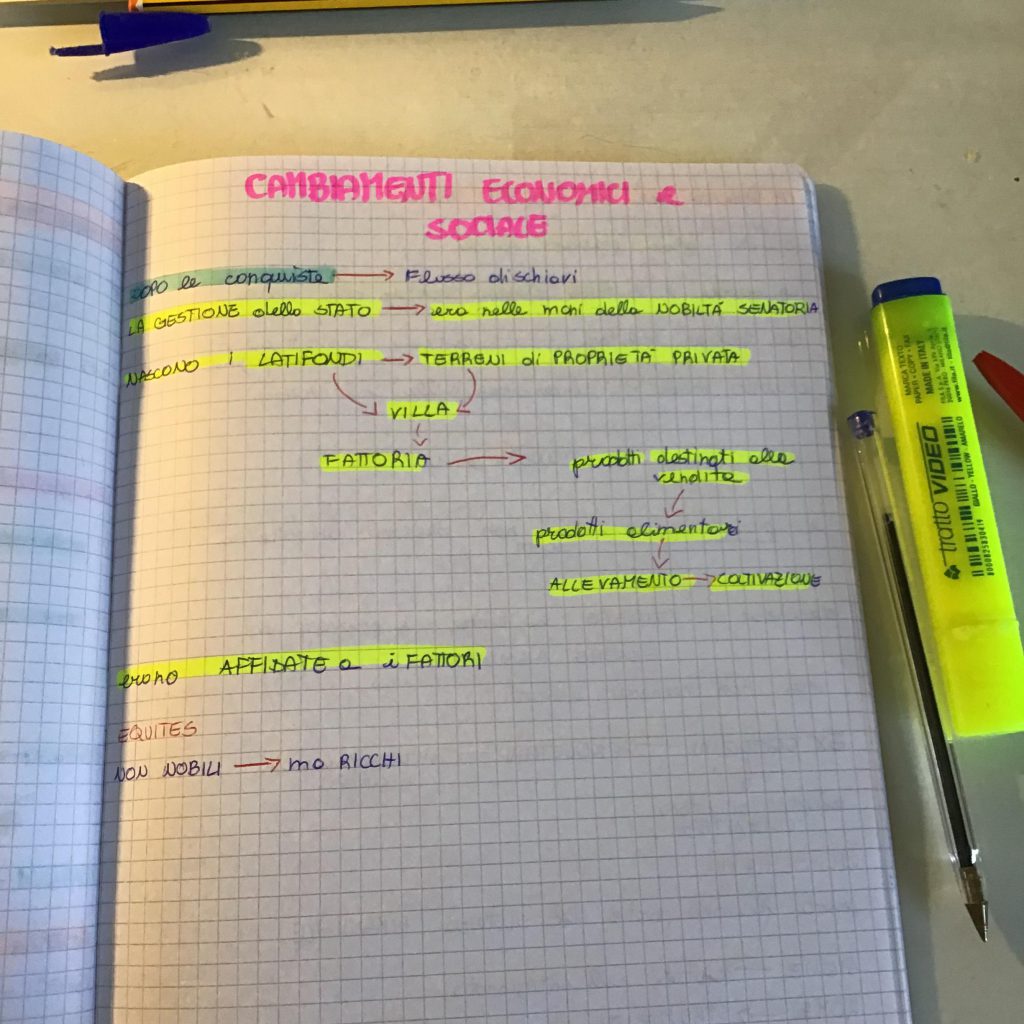 CAMBIAMENTI ECONOMICI e
SOCIALE
DOPO le conquiste → Flusso di schiavi
LA GESTIONE dello STATO → era nelle mani della NOBILTÀ SENATORIA
NASCONO i LATIFONDI → TERRENI di PROPRIETÀ PRIVATA
VILLA
FATTORIA → prodotti destinati alla
vendita
prodotti alimentari
ALLEVAMENTO → COLTIVAZIONE
erano AFFIDATE a i FATTORI
EQUITES
NON NOBILI → ma RICCHI
tratto VIDEO
MARCA TESTO
PAPER • COPY • FAX
MADE IN ITALY
GIALLO - YELLOW - AMARELO